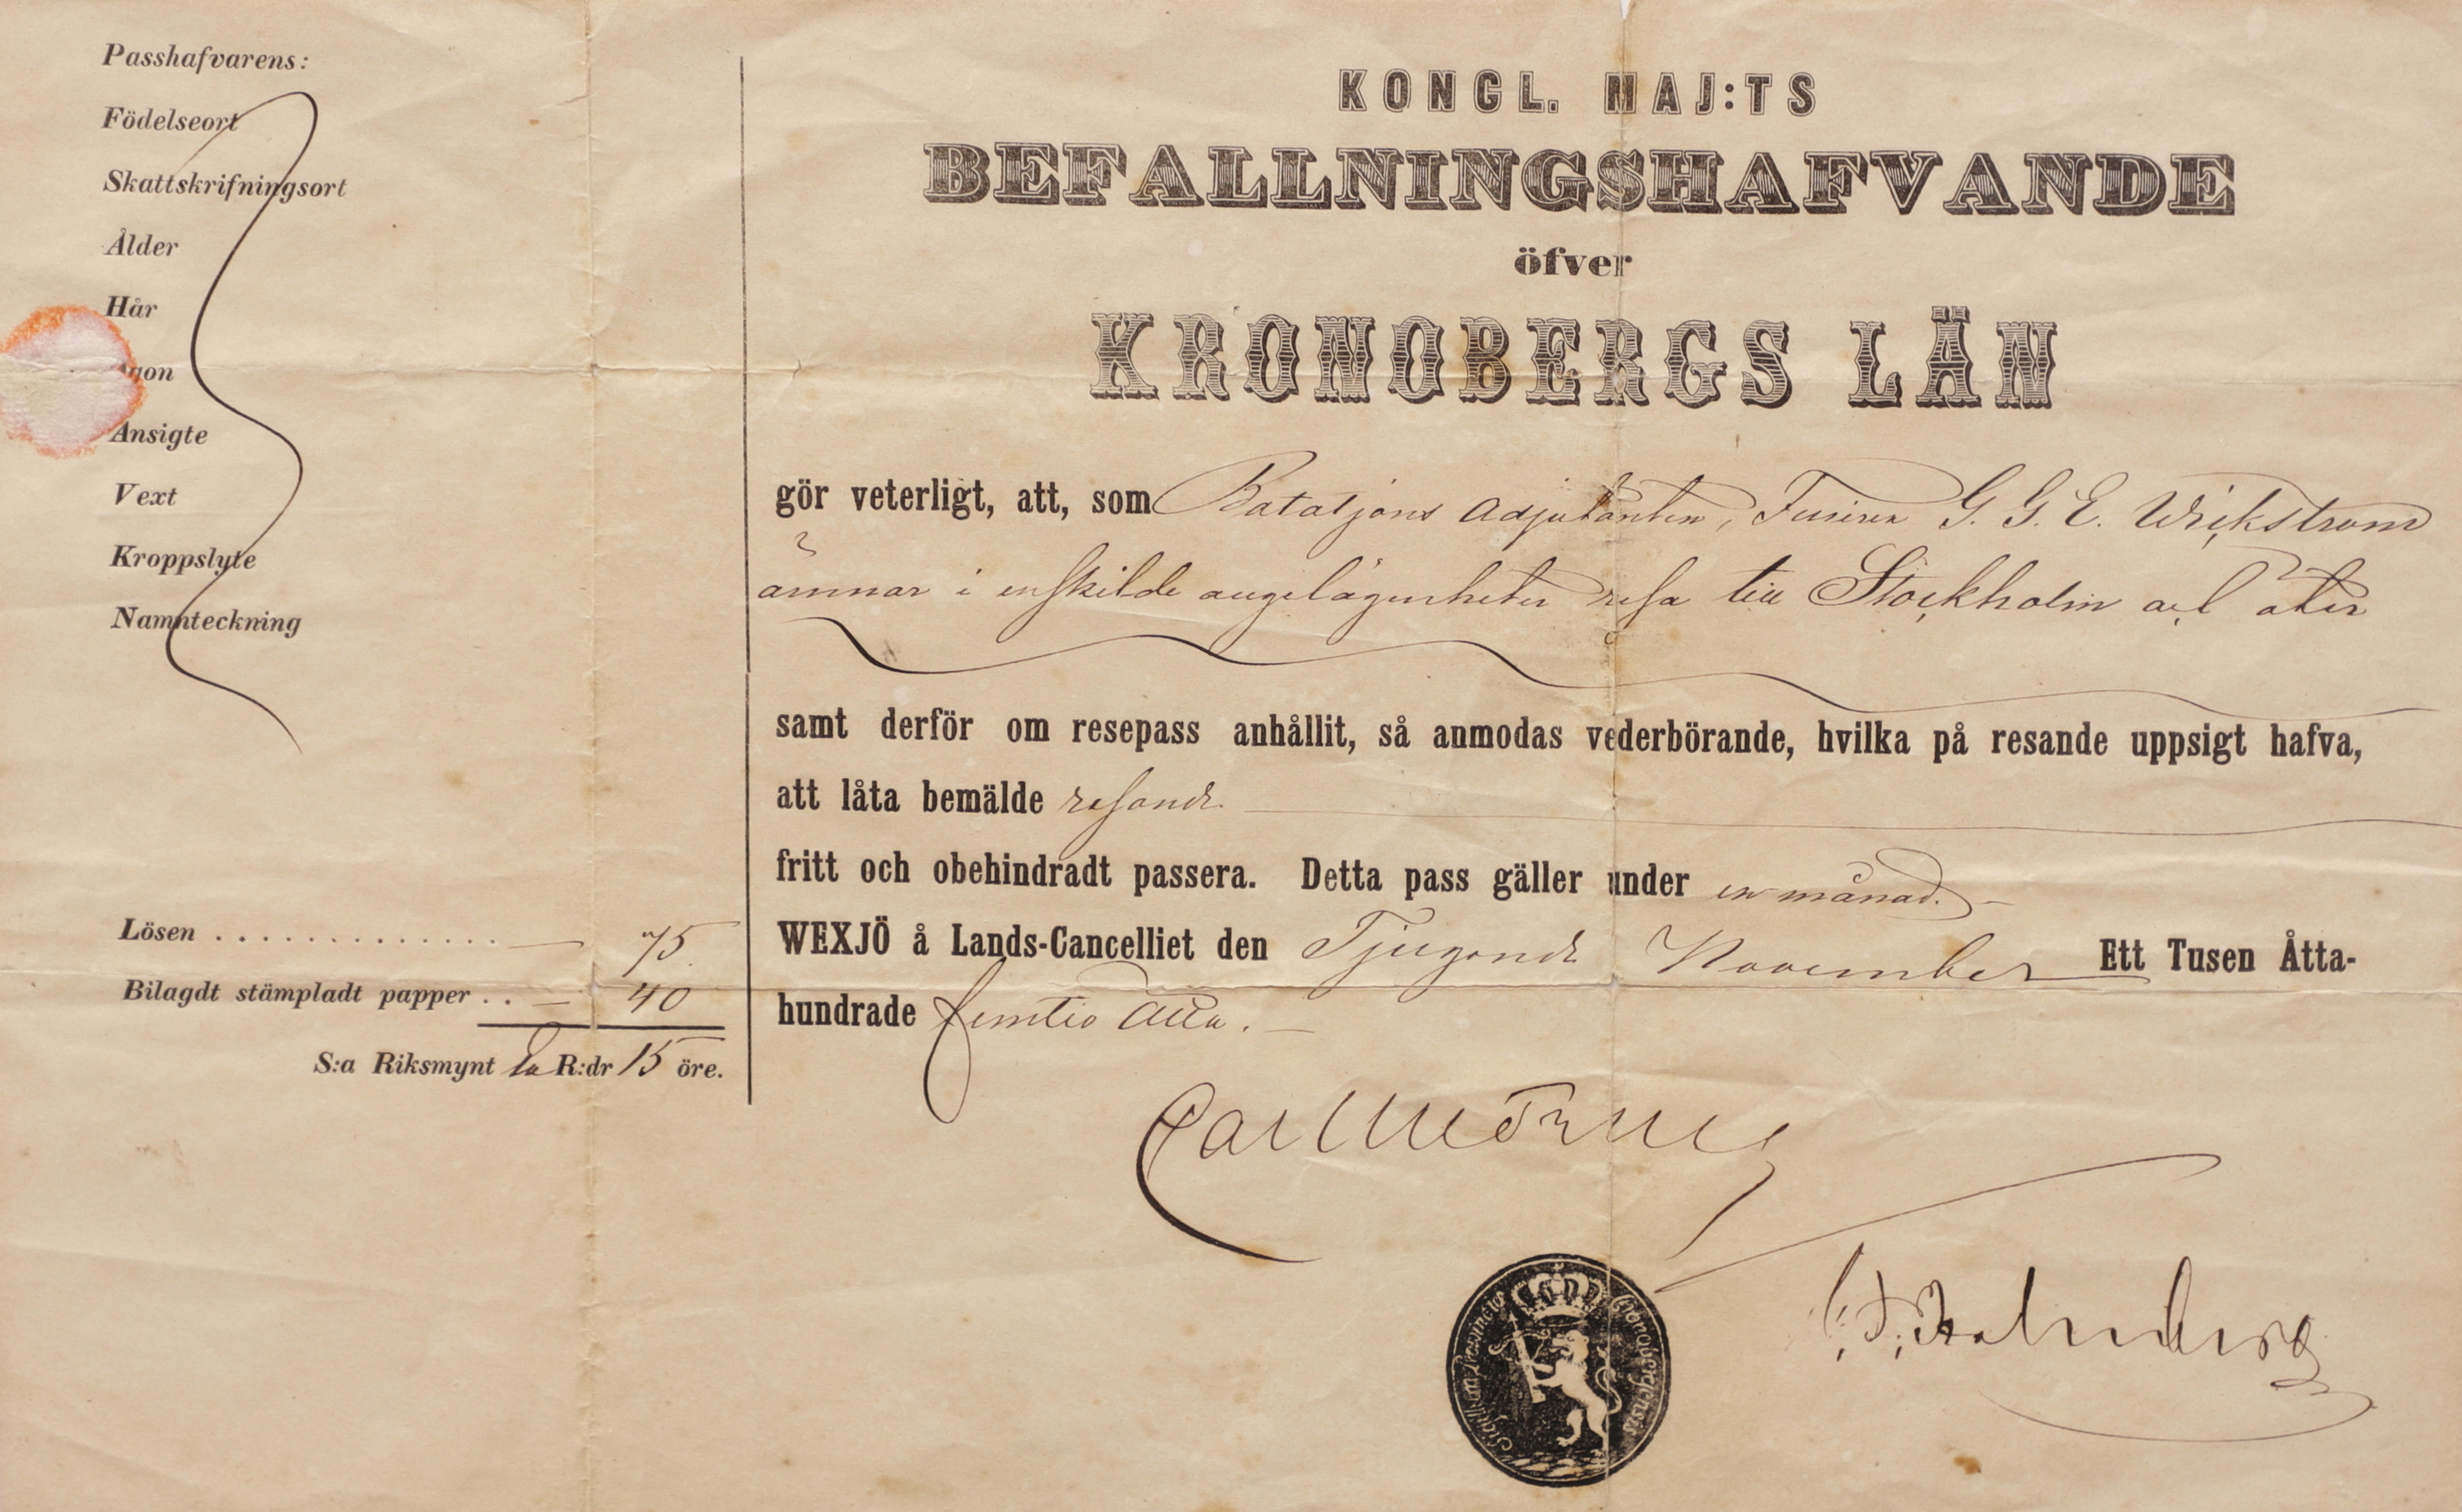 Passhafvarens:
Födelseort
Skattskrifningsort
Ålder
Hår
Ögon
Ansigte
Vext
Kroppslyte
Namnteckning
Lösen . . . . . . . . . . . . . . — 75
Bilagdt stämpladt papper . . — 40
S:a Riksmynt En R:dr 15 öre.
KONGL. MAJ:TS
BEFALLNINGSHAFVANDE
öfver
KRONOBERGS LÄN
gör veterligt, att, som Bataljons Adjutanten, Furiren G. G. E. Wickström
ämnar i enskilde angelägenheter resa till Stockholm och åter
samt derför om resepass anhållit, så anmodas vederbörande, hvilka på resande uppsigt hafva,
att låta bemälde resande
fritt och obehindradt passera. Detta pass gäller under en månad.
WEXJÖ å Lands-Cancelliet den Tjugonde November Ett Tusen Åtta-
hundrade femtio åtta.
Carl Mörner
Sigillum Provinciæ Cronobergensis